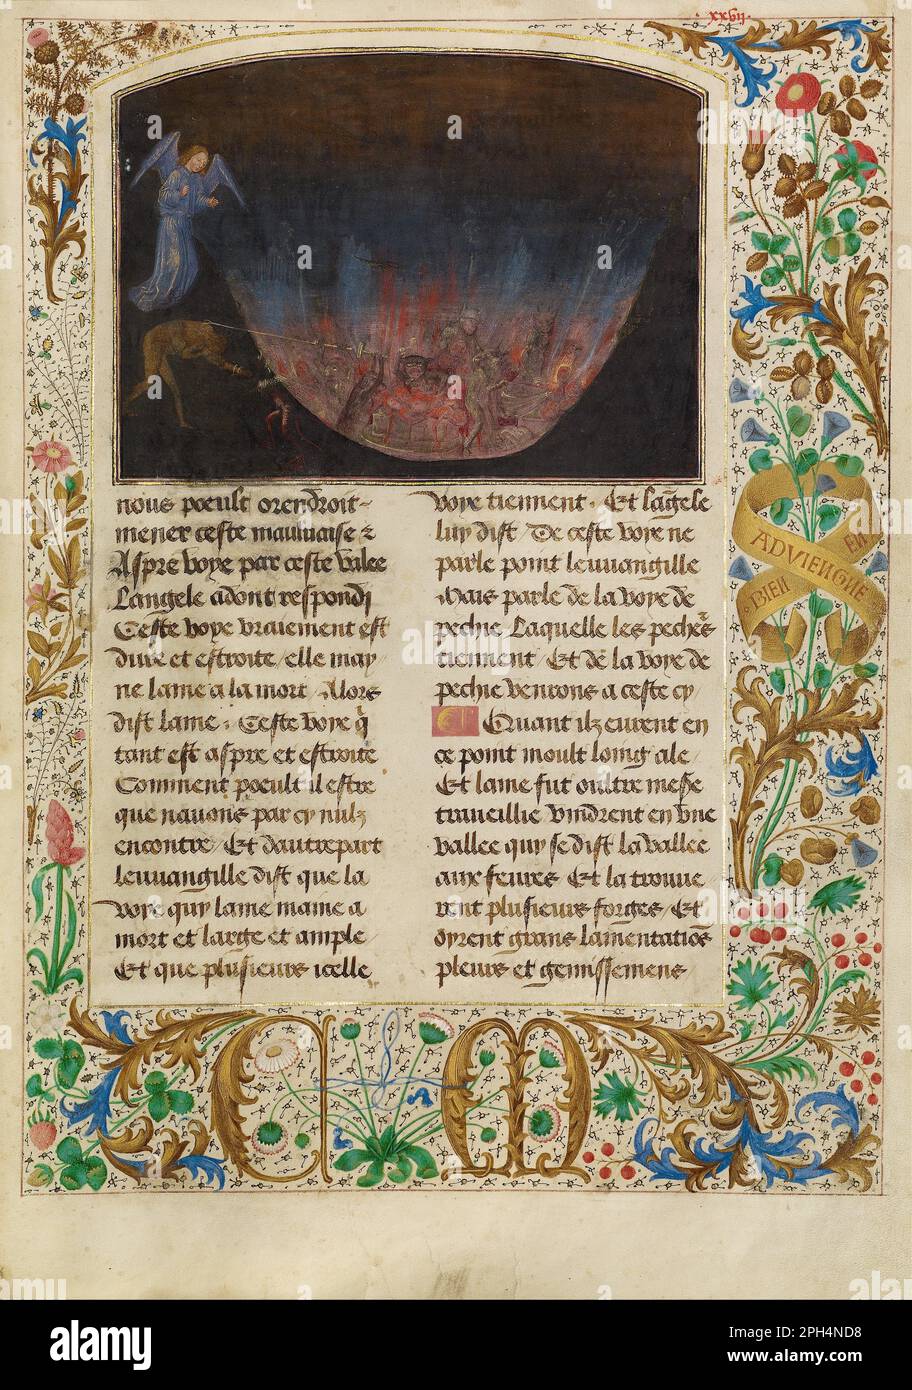 xxvii.
nous poeult orendroit-
mener ceste mauluaise &
Aspre voye par ceste valee
Langele adont respondj
Ceste voye vraiement est
dure et estroite / elle may
ne lame a la mort / Alors
dist lame . Ceste voye q̄
tant est aspre et estroite
Comment poeult il estre
que nauons par cy nulz
encontre / Et daultre part
leuuangille dist que la
voye quy lame maine a
mort et large et ample /
Et que plusieurs icelle
voye tiennent . Et lāgele
luy dist / De ceste voye ne
parle point leuuangille
Mais parle de la voye de
pechie Laquelle les pechēs
tiennent / Et de la voye de
pechie venrons a ceste cy /
Quant ilz eurent en
ce point moult loing ale
Et lame fut oultre mesē
traueillie vindrent en vne
vallee quy se dist la vallee
aux feures Et la trouue
rent plusieurs forges / Et
oyrent grans lamentatiōs
pleurs et gemissemens /
BIEN EN
ADVIENGNE
C M
alamy
Image ID: 2PH4ND8
www.alamy.com